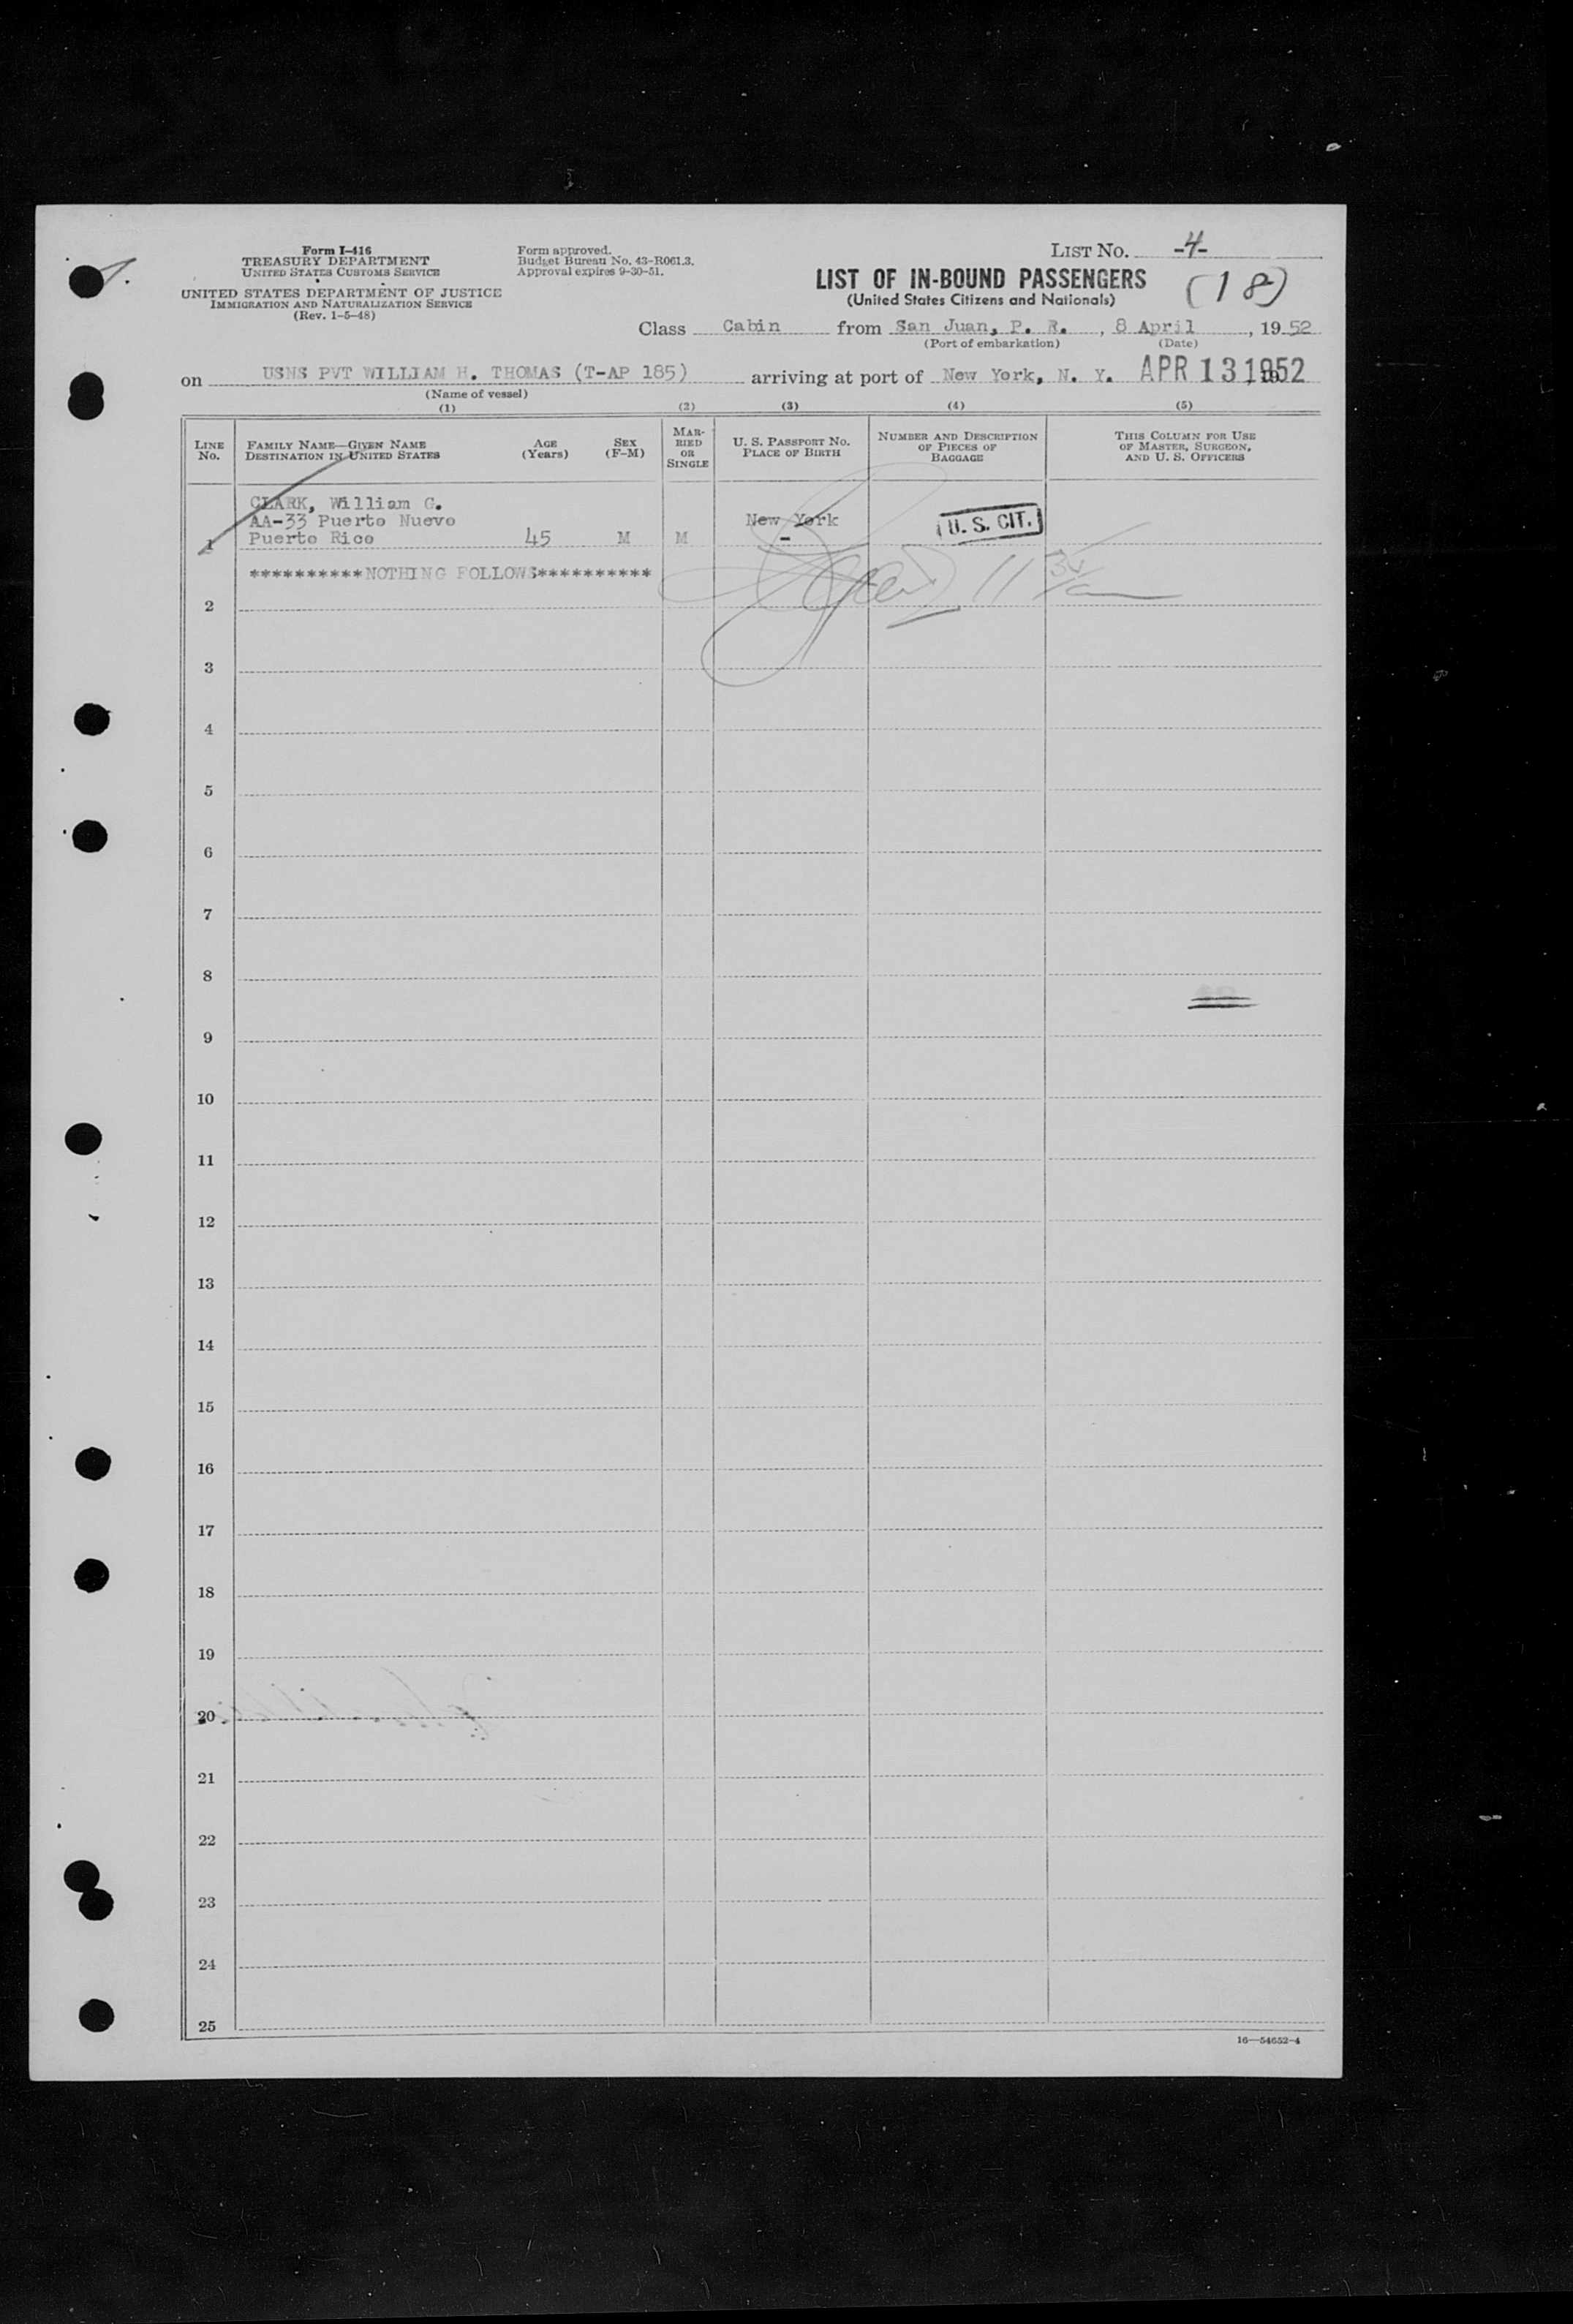 Form I-416
TREASURY DEPARTMENT
UNITED STATES CUSTOMS SERVICE
UNITED STATES DEPARTMENT OF JUSTICE
IMMIGRATION AND NATURALIZATION SERVICE
(Rev. 1-5-48)
Form approved.
Budget Bureau No. 43-R061.3.
Approval expires 9-30-51.
LIST NO. -4-
LIST OF IN-BOUND PASSENGERS
(United States Citizens and Nationals)
(18)
Class Cabin from San Juan, P. R., 8 April, 1952
(Port of embarkation) (Date)
on USNS PVT WILLIAM H. THOMAS (T-AP 185) arriving at port of New York, N. Y. APR 13 1952
(Name of vessel)
(1) (2) (3) (4) (5)
LINE No.
FAMILY NAME—GIVEN NAME
DESTINATION IN UNITED STATES
AGE (Years)
SEX (F-M)
MARRIED OR SINGLE
U. S. PASSPORT NO.
PLACE OF BIRTH
NUMBER AND DESCRIPTION
OF PIECES OF
BAGGAGE
THIS COLUMN FOR USE
OF MASTER, SURGEON,
AND U. S. OFFICERS
CLARK, William G.
AA-33 Puerto Nuevo New York U. S. CIT.
1 Puerto Rico 45 M M -
**********NOTHING FOLLOWS**********
2
3
4
5
6
7
8
9
10
11
12
13
14
15
16
17
18
19
20
21
22
23
24
25
16—54652-4